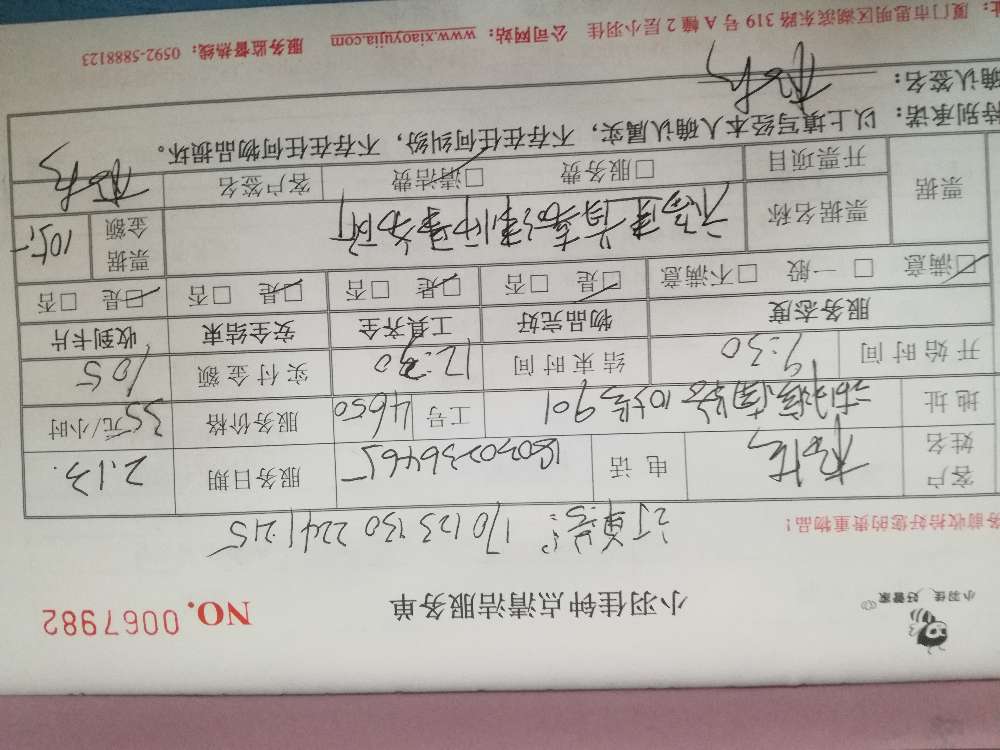 小羽佳 好管家
小羽佳钟点清洁服务单 NO. 0067982
务前收拾好您的贵重物品!
订单号: 1701231302241215
客户姓名 电话 18030236465 服务日期 2.13.
地址 湖滨南路10号901 工号 4650 服务价格 35元/小时
开始时间 9:30 结束时间 12:30 实付金额 105
服务态度 物品完好 工具齐全 安全结束 收到卡片
☑满意 □一般 □不满意 ☑是 □否 ☑是 □否 ☑是 □否 ☑是 □否
票据 票据名称 福建首嘉律师事务所 票据金额 105,-
开票项目 □服务费 ☑清洁费 客户签名
特别承诺:以上填写经本人确认属实,不存在任何纠纷,不存在任何物品损坏。
确认签名:
址:厦门市思明区湖滨东路319号A幢2层小羽佳 公司网站:www.xiaoyujia.com 服务监督热线:0592-5888123